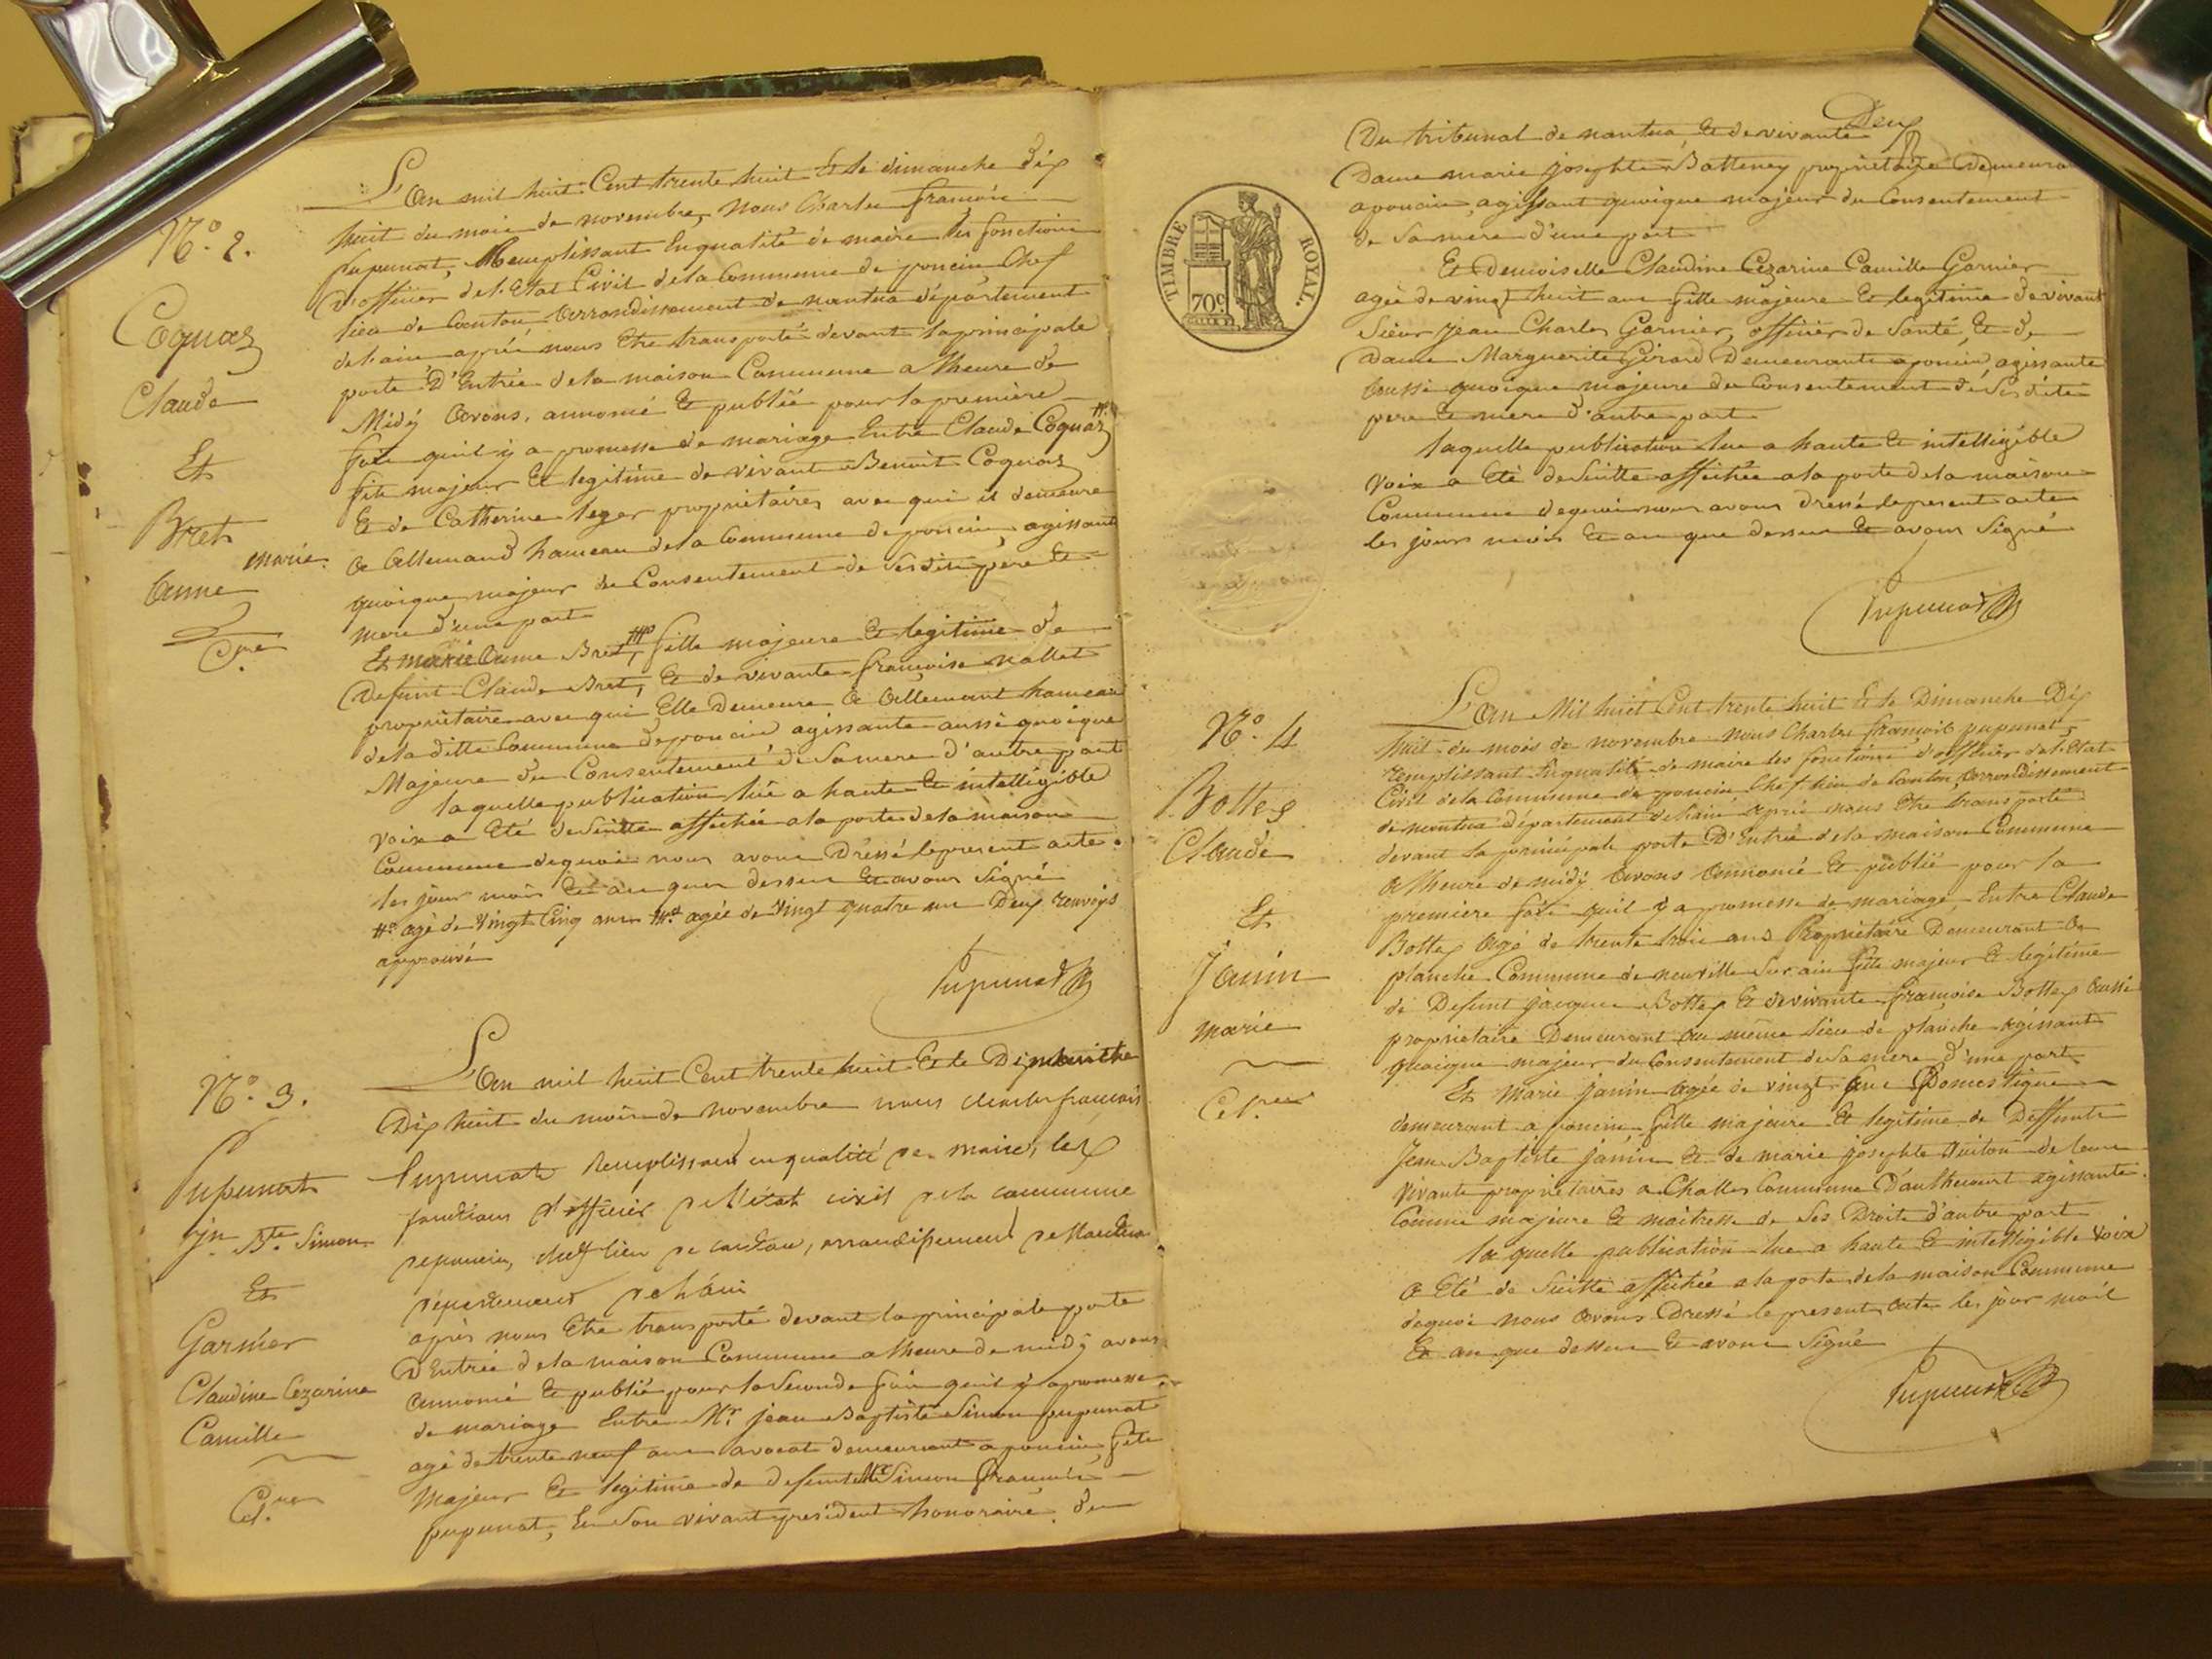 N.o 2.
Coquaz
Claude
Et
Bret marie
Anne
L'an mil huit Cent trente huit Et le dimanche dix
huit du mois de novembre, nous Charles françois
pupunat, Remplissant En qualité de maire les fonctions
D'officier de l'Etat Civil de la Commune de poncin Chef
lieu de Canton, Arrondissement de nantua département
de l'ain après nous Etre transporté devant la principale
porte D'Entrée de la maison Commune a l'heure de
Midy Avons, annoncé Et publié pour la première
fois qu'il y a promesse de mariage Entre Claude Coquaz #o
fils majeur Et legitime de vivant Benoit Coquaz
Et de Catherine leger propriétaires avec qui il demeure
a Allemand hameau de la Commune de poncin, agissant
quoique majeur du Consentement de ses dits père Et
mere d'une part
Et marie Anne Bret, ## fille majeure Et legitime de
Defunt Claude Bret, Et de vivante françoise nallet
propriétaire avec qui Elle Demeure a Allemant hameau
de la ditte Commune de poncin agissante aussi quoique
Majeure du Consentement de Sa mere d'autre part
la quelle publication lue a haute Et intelligible
Voix a Eté de Suitte affichée a la porte de la maison
Commune de quoi nous avons Dressé le present acte
les jour mois Et an que dessus Et avons Signé
#o agé de Vingt Cinq ans ## agée de Vingt quatre ans Deux renvoys
approuvé
Pupunat
N.o 3.
Pupunat
jn. Bte. Simon
Et
Garnier
Claudine Cezarine
Camille
L'an mil huit Cent trente huit Et le Dimanche
Dix huit du mois de novembre nous charles françois
Pupunat Remplissant en qualité de maire, les
fonctions d'officier de l'état civil de la commune
de poncin, chef lieu de canton, arrondissement de Nantua
département de l'ain
après nous Etre transporté devant la principale porte
D'Entrée de la maison Commune a l'heure de midy avons
annoncé Et publié pour la Seconde fois qu'il y a promesse
de mariage Entre Mr. jean Baptiste Simon pupunat
agé de trente neuf ans avocat demeurant a poncin, fils
Majeur Et legitime de defunt Mr Simon françois
pupunat, En Son vivant president honoraire du
Deux
TIMBRE ROYAL.
70c
Du tribunal de nantua, Et de vivante
Dame marie josephte Batteney propriétaire Demeurant
a poncin, agissant quoique majeur du Consentement
de Sa mere d'une part
Et Demoiselle Claudine Cezarine Camille Garnier
agée de vingt huit ans fille majeure Et legitime de vivant
Sieur Jean Charles Garnier, officier de Santé, Et de
Dame Marguerite Girard Demeurants a poncin, agissante
aussi quoique majeure du Consentement de Ses dits
pere Et mere d'autre part
laquelle publication lue a haute Et intelligible
Voix a Eté de Suitte affichée a la porte de la maison
Commune de quoi nous avons Dressé le present acte
les jours mois Et an que dessus Et avons Signé
Pupunat
N.o 4
Bottex
Claude
Et
Janin
marie
L'An Mil huit Cent trente huit Et le Dimanche Dix
huit du mois de novembre nous Charles françois pupunat,
remplissant En qualité de maire les fonctions d'officier de l'Etat
Civil de la Commune de poncin, Chef lieu de Canton, Arrondissement
de nantua département de l'ain après nous Etre transporté
devant la principale porte D'Entrée de la maison Commune
a l'heure de midy Avons Annoncé Et publié pour la
premiere fois qu'il y a promesse de mariage, Entre Claude
Bottex Agé de trente trois ans Propriétaire Demeurant a
planche Commune de neuville Sur ain fils majeur Et légitime
de Defunt jacques Bottex Et de vivante françoise Bottex Aussi
propriétaire Demeurant au même lieu de planche agissant
quoique majeur du Consentement de Sa mere d'une part
Et Marie janin Agée de vingt Domestique
demeurant a poncin fille majeure Et legitime de Deffunte
Jean Baptiste janin Et de marie josephte de leur
Vivants propriétaires a Challes Commune agissante
Comme majeure Et maitresse de Ses Droits d'autre part
la quelle publication lue a haute Et intelligible Voix
a Eté de Suitte affichée a la porte de la maison Commune
de quoi nous Avons Dressé le present Acte les jour mois
Et an que dessus Et avons Signé
Pupunat